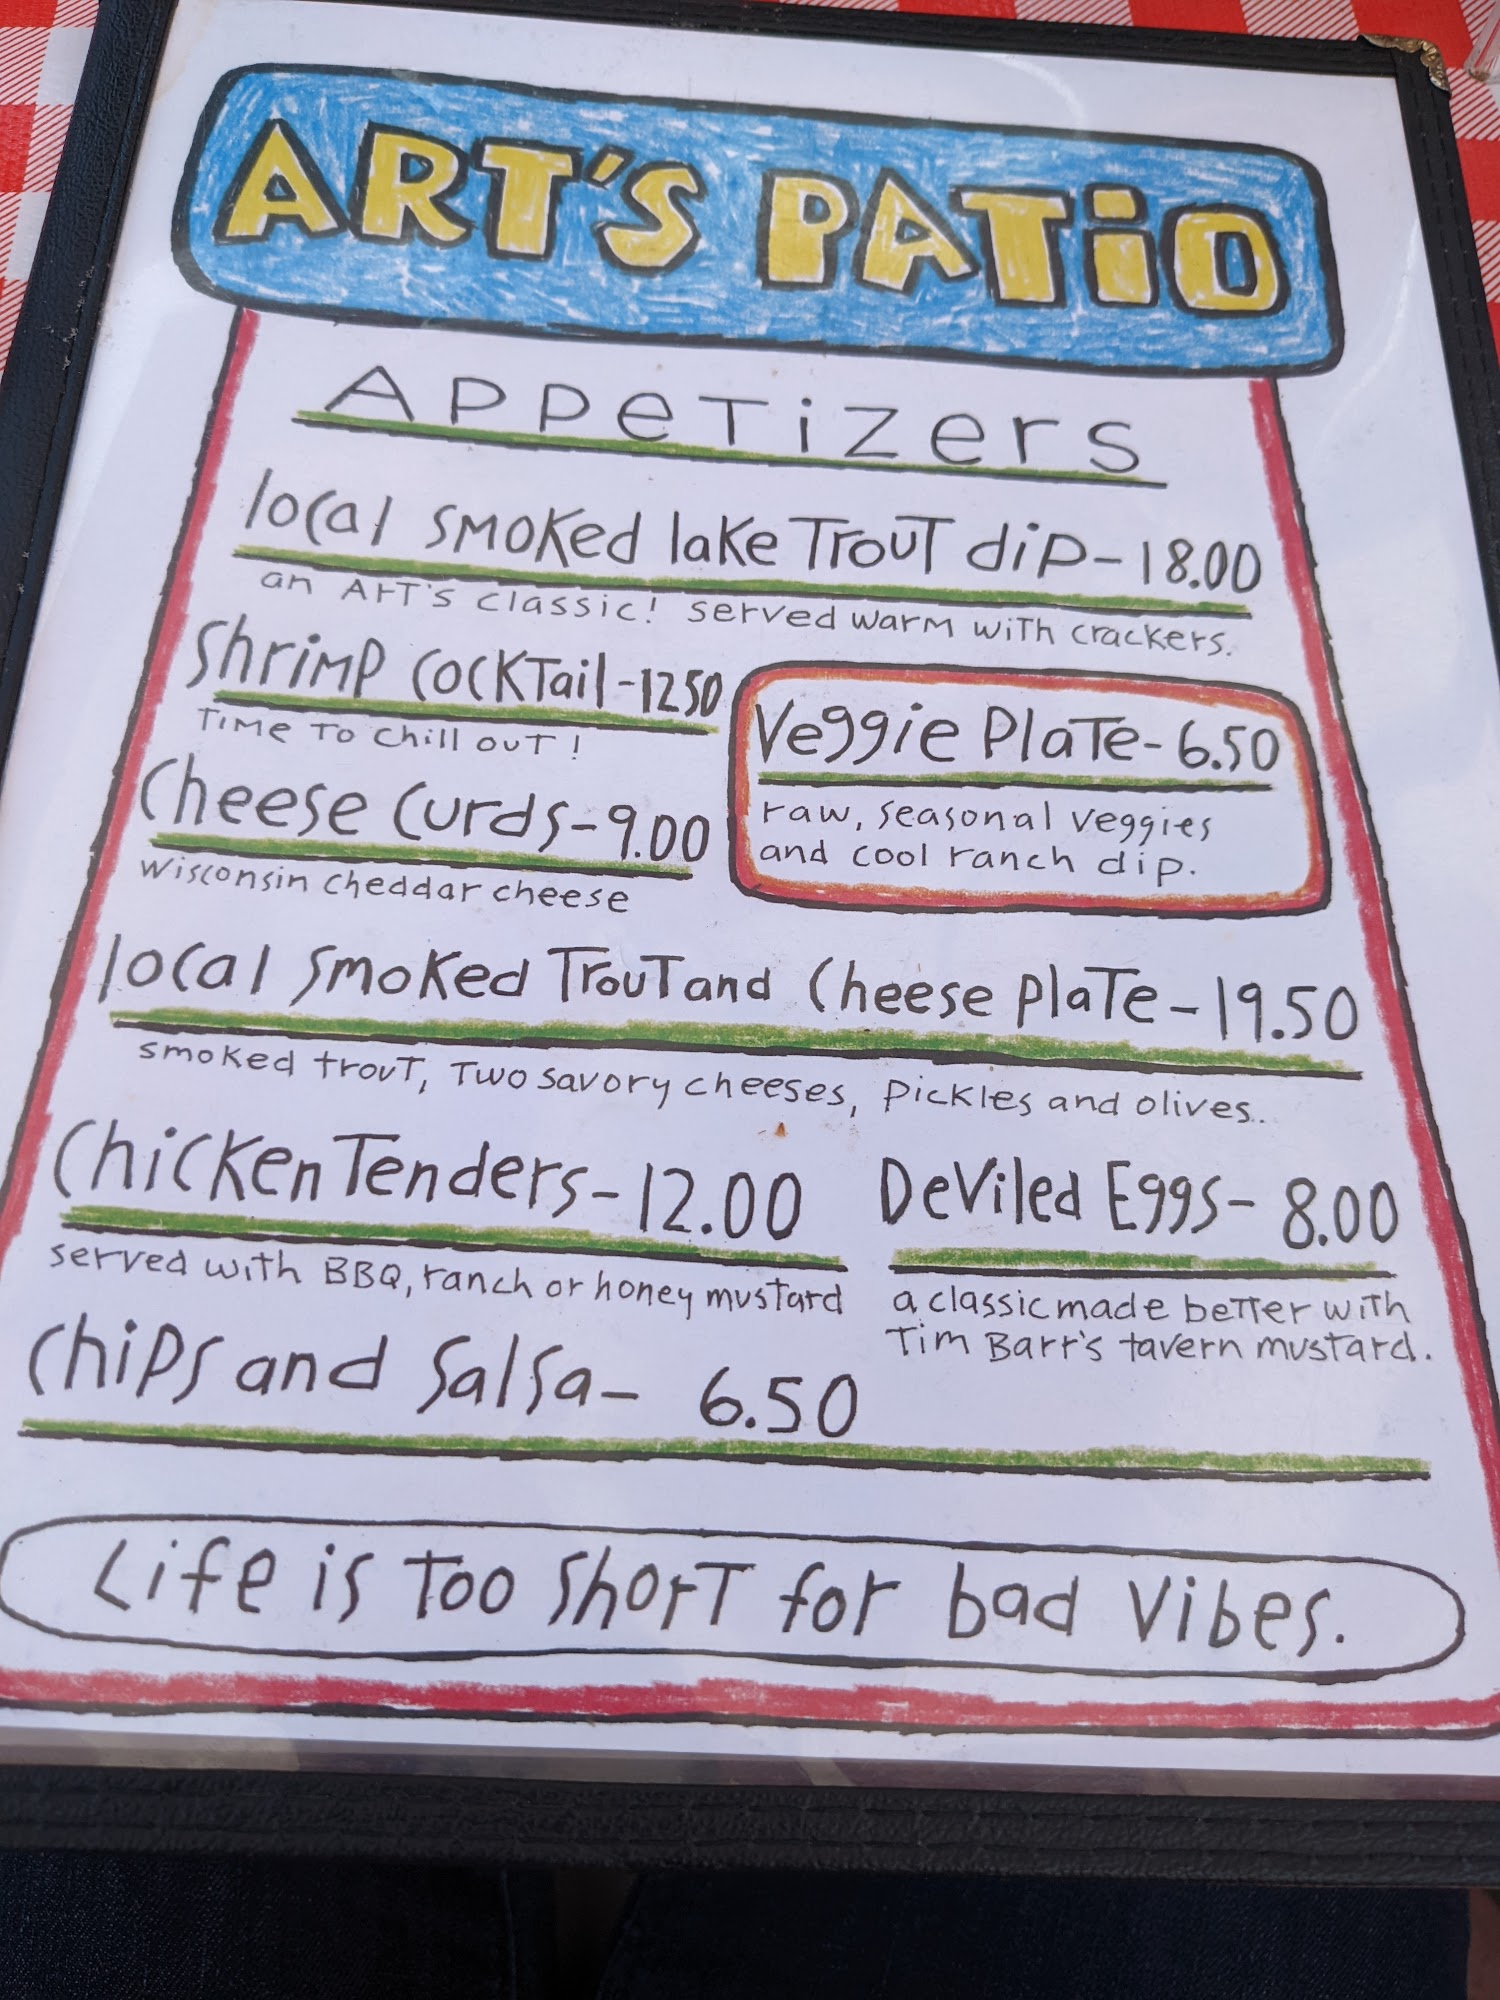 ART'S PATiO
APPeTiZers
local smoked lake Trout dip-18.00
an Art's classic! served warm with crackers.
Shrimp cocktail-1250
Time to chill out!
Veggie Plate-6.50
raw, seasonal veggies
and cool ranch dip.
Cheese Curds-9.00
Wisconsin cheddar cheese
local smoked Trout and Cheese plate-19.50
smoked trout, two savory cheeses, pickles and olives..
Chicken Tenders-12.00
served with BBQ, ranch or honey mustard
Deviled Eggs-8.00
a classic made better with
Tim Barr's tavern mustard.
Chips and Salsa- 6.50
Life is too short for bad vibes.